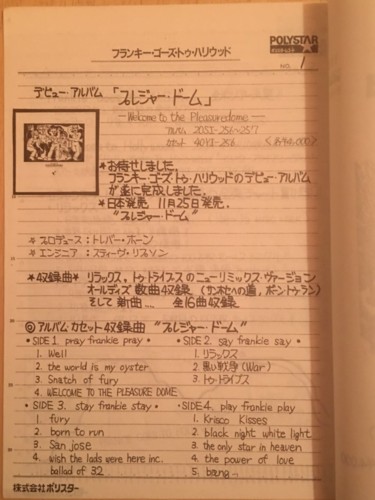 POLYSTAR
フランキー・ゴーズ・トゥ・ハリウッド
NO. 1
デビュー・アルバム 「プレジャー・ドーム」
— Welcome to the Pleasuredome —
アルバム 20SI-256~257
カセット 40YI-258
★お待せしました
フランキー・ゴーズ・トゥ・ハリウッドのデビュー・アルバム
が遂に完成しました.
★日本発売. 11月25日発売.
"プレジャー・ドーム"
☆ プロデュース：トレバー・ホーン
☆ エンジニア ：スティーヴ・リプソン
★収録曲★ リラックス, トゥ トライブスのニューリミックス・ヴァージョン
オールディズ 数曲収録
そして 新曲.... 全16曲収録
◎アルバム カセット 収録曲 "プレジャー・ドーム"
・SIDE 1. pray frankie pray・
1. Well
2. the world is my oyster
3. Snatch of fury
4. WELCOME TO THE PLEASURE DOME
・SIDE 2. say frankie say・
1. リラックス
2. 黒い戦争 (War)
3. トゥ・トライブス
・SIDE 3. stay frankie stay・
1. fury
2. born to run
3. San jose
4. wish the lads were here inc.
ballad of 32
・SIDE 4. play frankie play
1. Krisco Kisses
2. black night white light
3. the only star in heaven
4. the power of love
5. bang...
株式会社ポリスター